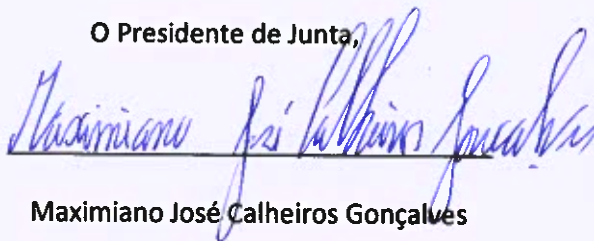 O Presidente de Junta,
Maximiano José Calheiros Gonçalves
Maximiano José Calheiros Gonçalves